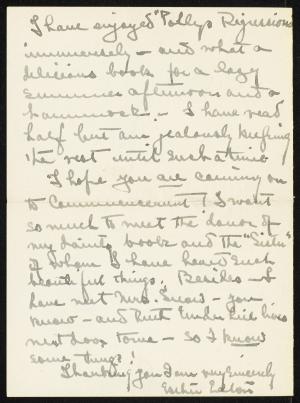 I have enjoyed "Pollys Regressions
immensely – and what a
delicious book for a lazy
summer afternoon and a
hammock. – I have read
half but am jealously keeping
the rest until such a time
I hope you are coming on
to Commencement! I want
so much to meet the donor of
my dainty book and the "Sister"
of whom I have heard such
beautiful things. Besides – I
have met Mrs. Snow – you
know – and Ruth lives
next door to me – so I know
some things!
Thanking you I am very sincerely
Esther Eaton